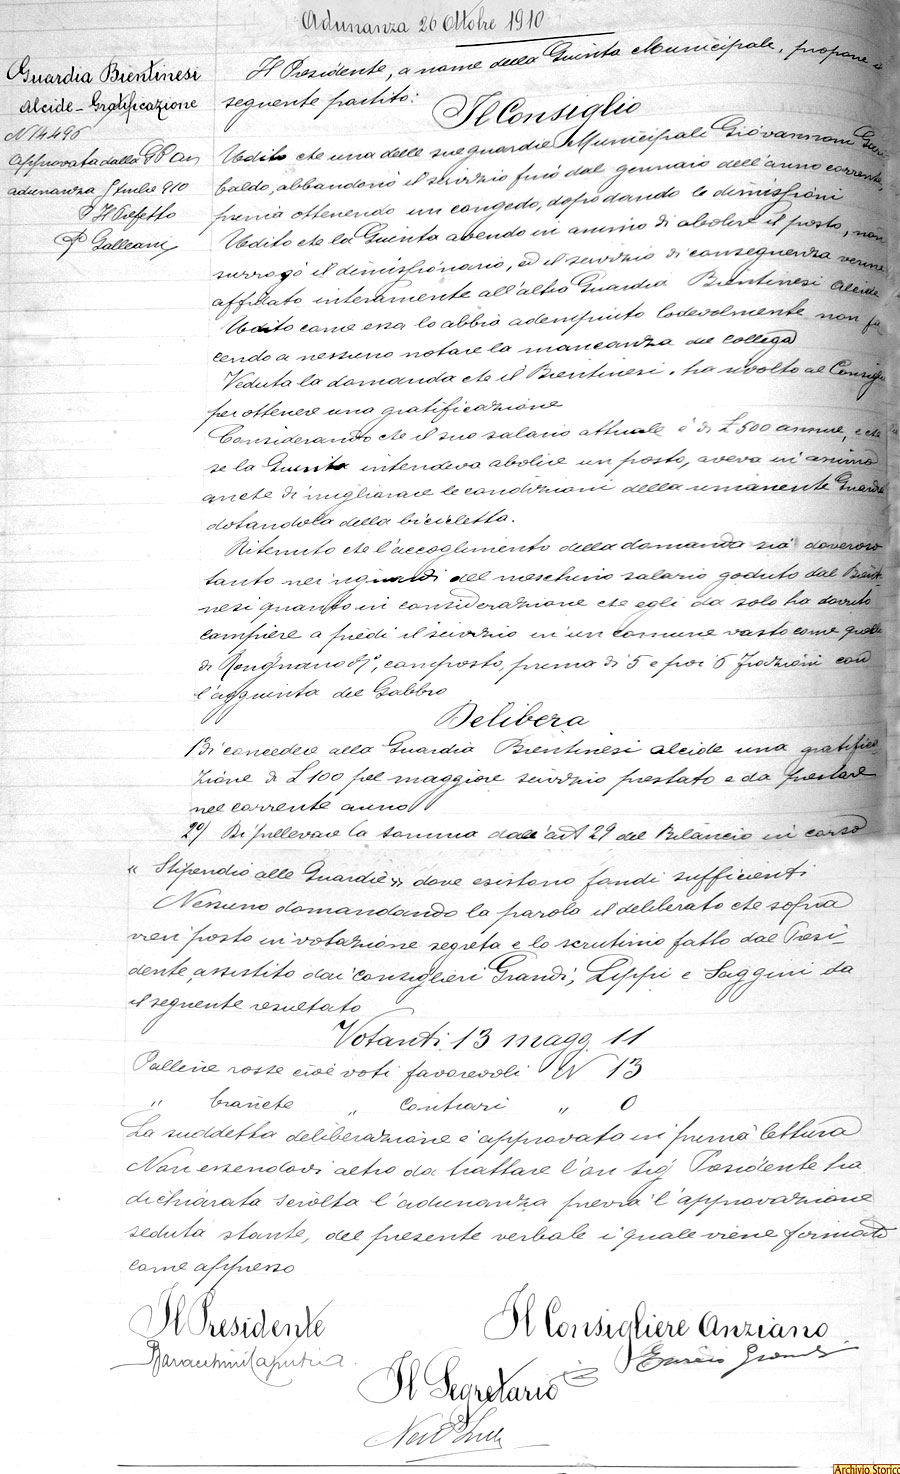 Adunanza 26 Ottobre 1910
Guardia Bientinesi
Alcide - Gratificazione
N 14496
Approvata dalla GPA in
adunanza
P Il Prefetto
Galleani
Il Presidente, a nome della Giunta Municipale, propone il
seguente partito:
Il Consiglio
Udito che una delle sue guardie Municipali Giovannoni Gari
baldo, abbandonò il servizio fino dal gennaio dell'anno corrente,
prima ottenendo un congedo, dopo dando le dimissioni
Udito che la Giunta avendo in animo di abolire il posto, non
surrogò il dimissionario, ed il servizio di conseguenza venne
affidato interamente all'altra Guardia Bientinesi Alcide
Udito come essa lo abbia adempiuto lodevolmente non fa
cendo a nessuno notare la mancanza del collega
Veduta la domanda che il Bientinesi ha rivolto al Consiglio
per ottenere una gratificazione
Considerando che il suo salario attuale è di £ 500 annue, e che
se la Giunta intendeva abolire un posto, aveva in animo
anche di migliorare le condizioni della rimanente Guardia
dotandola della bicicletta.
Ritenuto che l'accoglimento della domanda sia doveroso
tanto nei riguardi del meschino salario goduto dal Bienti-
nesi quanto in considerazione che egli da solo ha dovuto
compiere a piedi il servizio in un comune vasto come quello
di Rosignano Mo, composto, prima di 5 e poi 6 frazioni con
l'aggiunta del Gabbro
Delibera
1 Di concedere alla Guardia Bientinesi Alcide una gratifica-
zione di £ 100 pel maggiore servizio prestato e da prestare
nel corrente anno
2°/ Di prelevare la somma dall'art 29 del Bilancio in corso
« Stipendio alle Guardie » dove esistono fondi sufficienti
Nessuno domandando la parola il deliberato che sopra
vien posto in votazione segreta e lo scrutinio fatto dal Presi-
dente, assistito dai consiglieri Grandi, Lippi e Saggini da
il seguente resultato
Votanti 13 magg. 11
Palline rosse cioè voti favorevoli N 13
" bianche " contrari " 0
La suddetta deliberazione è approvata in prima lettura
Non essendovi altro da trattare l'on sig Presidente ha
dichiarata sciolta l'adunanza previa l'approvazione
seduta stante, del presente verbale i quale viene firmato
come appresso
Il Presidente
Il Consigliere Anziano
Il Segretario
Archivio Storico